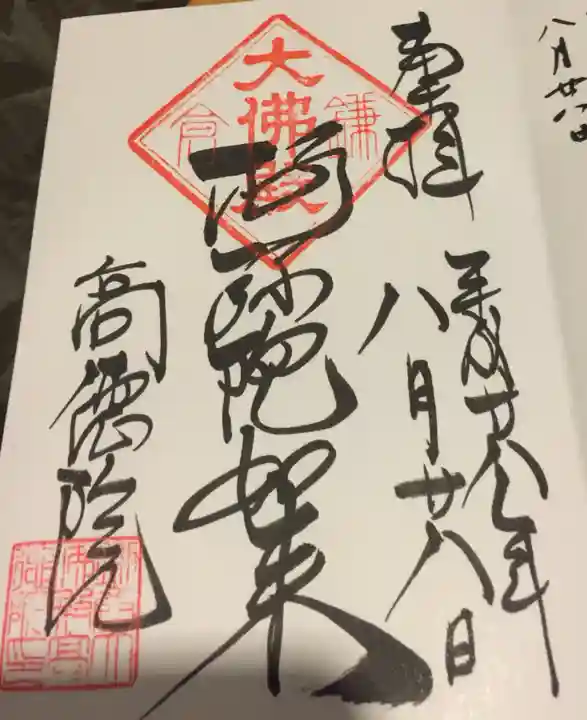 八月廿八日
奉拝
平成廿八年
八月廿八日
大佛殿
鎌倉
阿弥陀如来
高德院